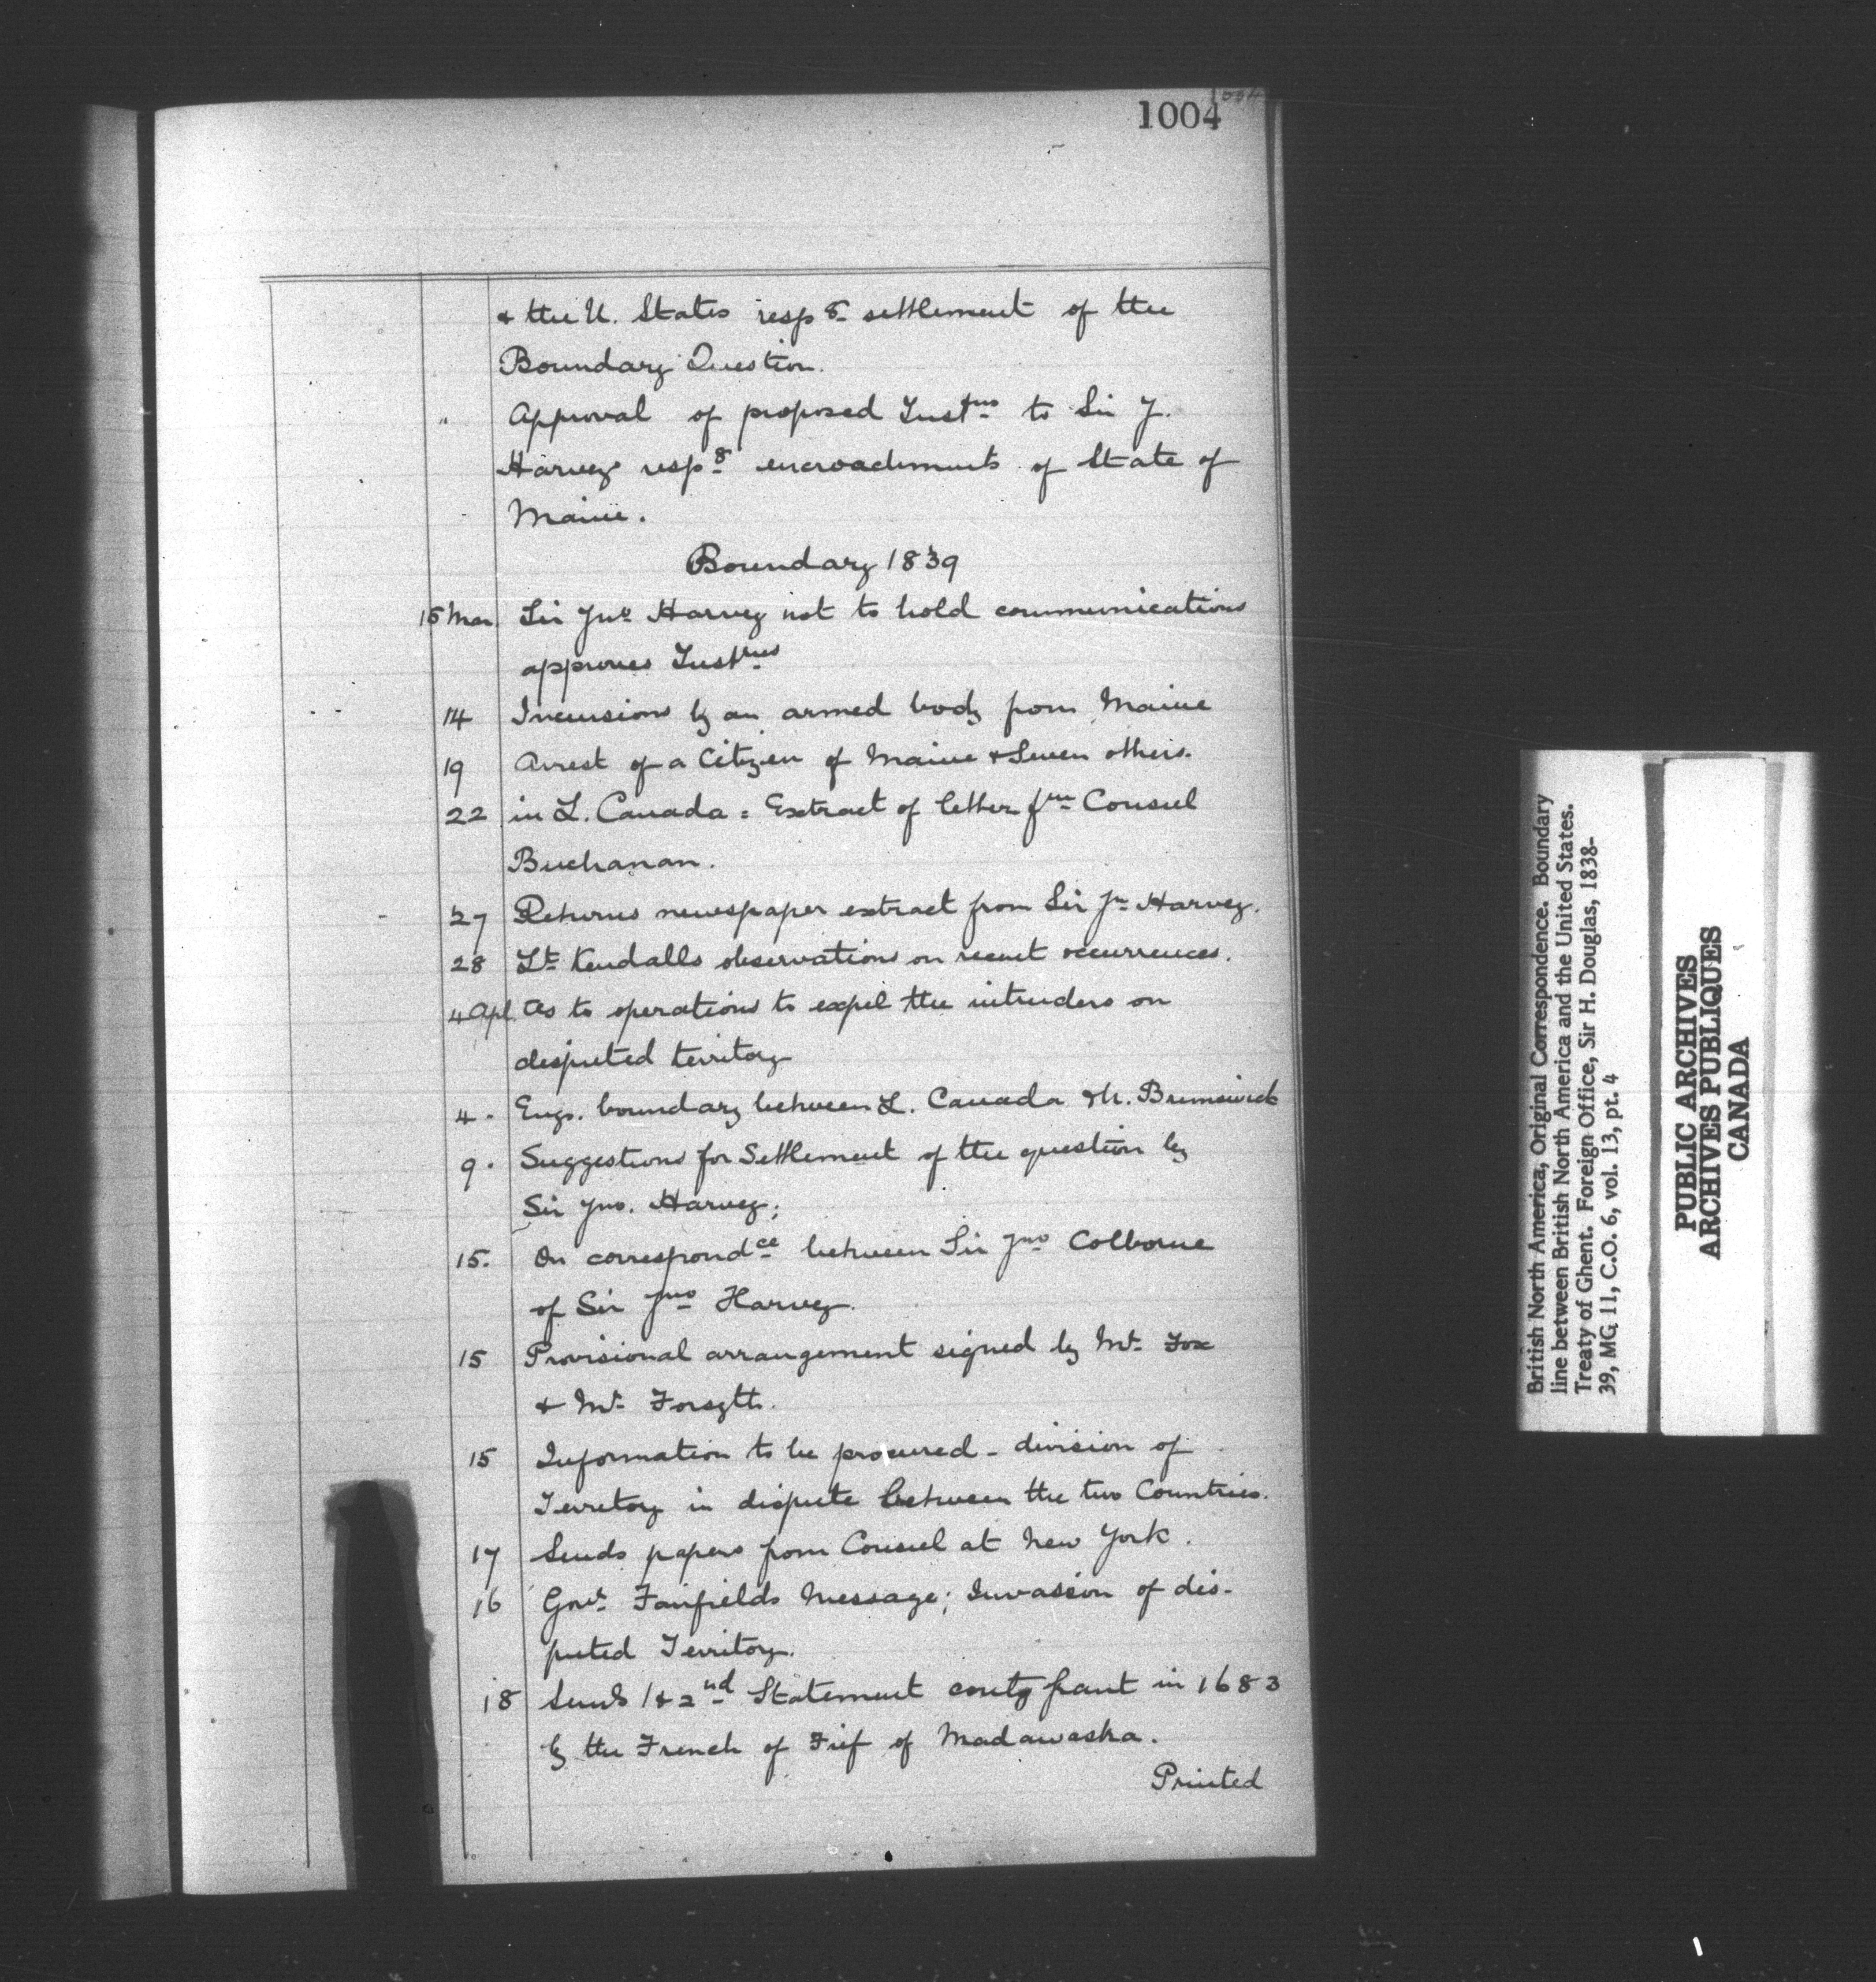 1004
& the U. States resp g settlement of the
Boundary Question.
" Approval of proposed Instns to Sir J.
Harvey resp g encroachments of State of
Maine.
Boundary 1839
15 Mar Sir Jno Harvey not to hold communications
approves Instrns
14 Incursions by an armed body from Maine
19 Arrest of a Citizen of Maine & Seven others.
22 in L. Canada = Extract of letter fm Consul
Buchanan.
27 Returns newspaper extract from Sir Jn Harvey.
28 Lt Kendalls observations on recent occurrences.
4 Apl. As to operations to expel the intruders on
disputed territory
4. Engs. boundary between L. Canada & N. Brunswick
9. Suggestions for Settlement of the question by
Sir Jno. Harvey;
15. On correspondce between Sir Jno Colborne
of Sir Jno Harvey.
15 Provisional arrangement signed by Mr Fox
& Mr Forsyth.
15 Information to be procured - division of
Territory in dispute between the two Countries.
17 Sends papers from Consul at New York.
16 Govr Fairfields Message; Invasion of dis-
puted Territory.
18 Sends 1 & 2nd Statement in 1683
by the French of Fief of Madawaska.
Printed
British North America, Original Correspondence. Boundary
line between British North America and the United States.
Treaty of Ghent. Foreign Office, Sir H. Douglas, 1838-
39, MG 11, C.O. 6, vol. 13, pt. 4
PUBLIC ARCHIVES
ARCHIVES PUBLIQUES
CANADA